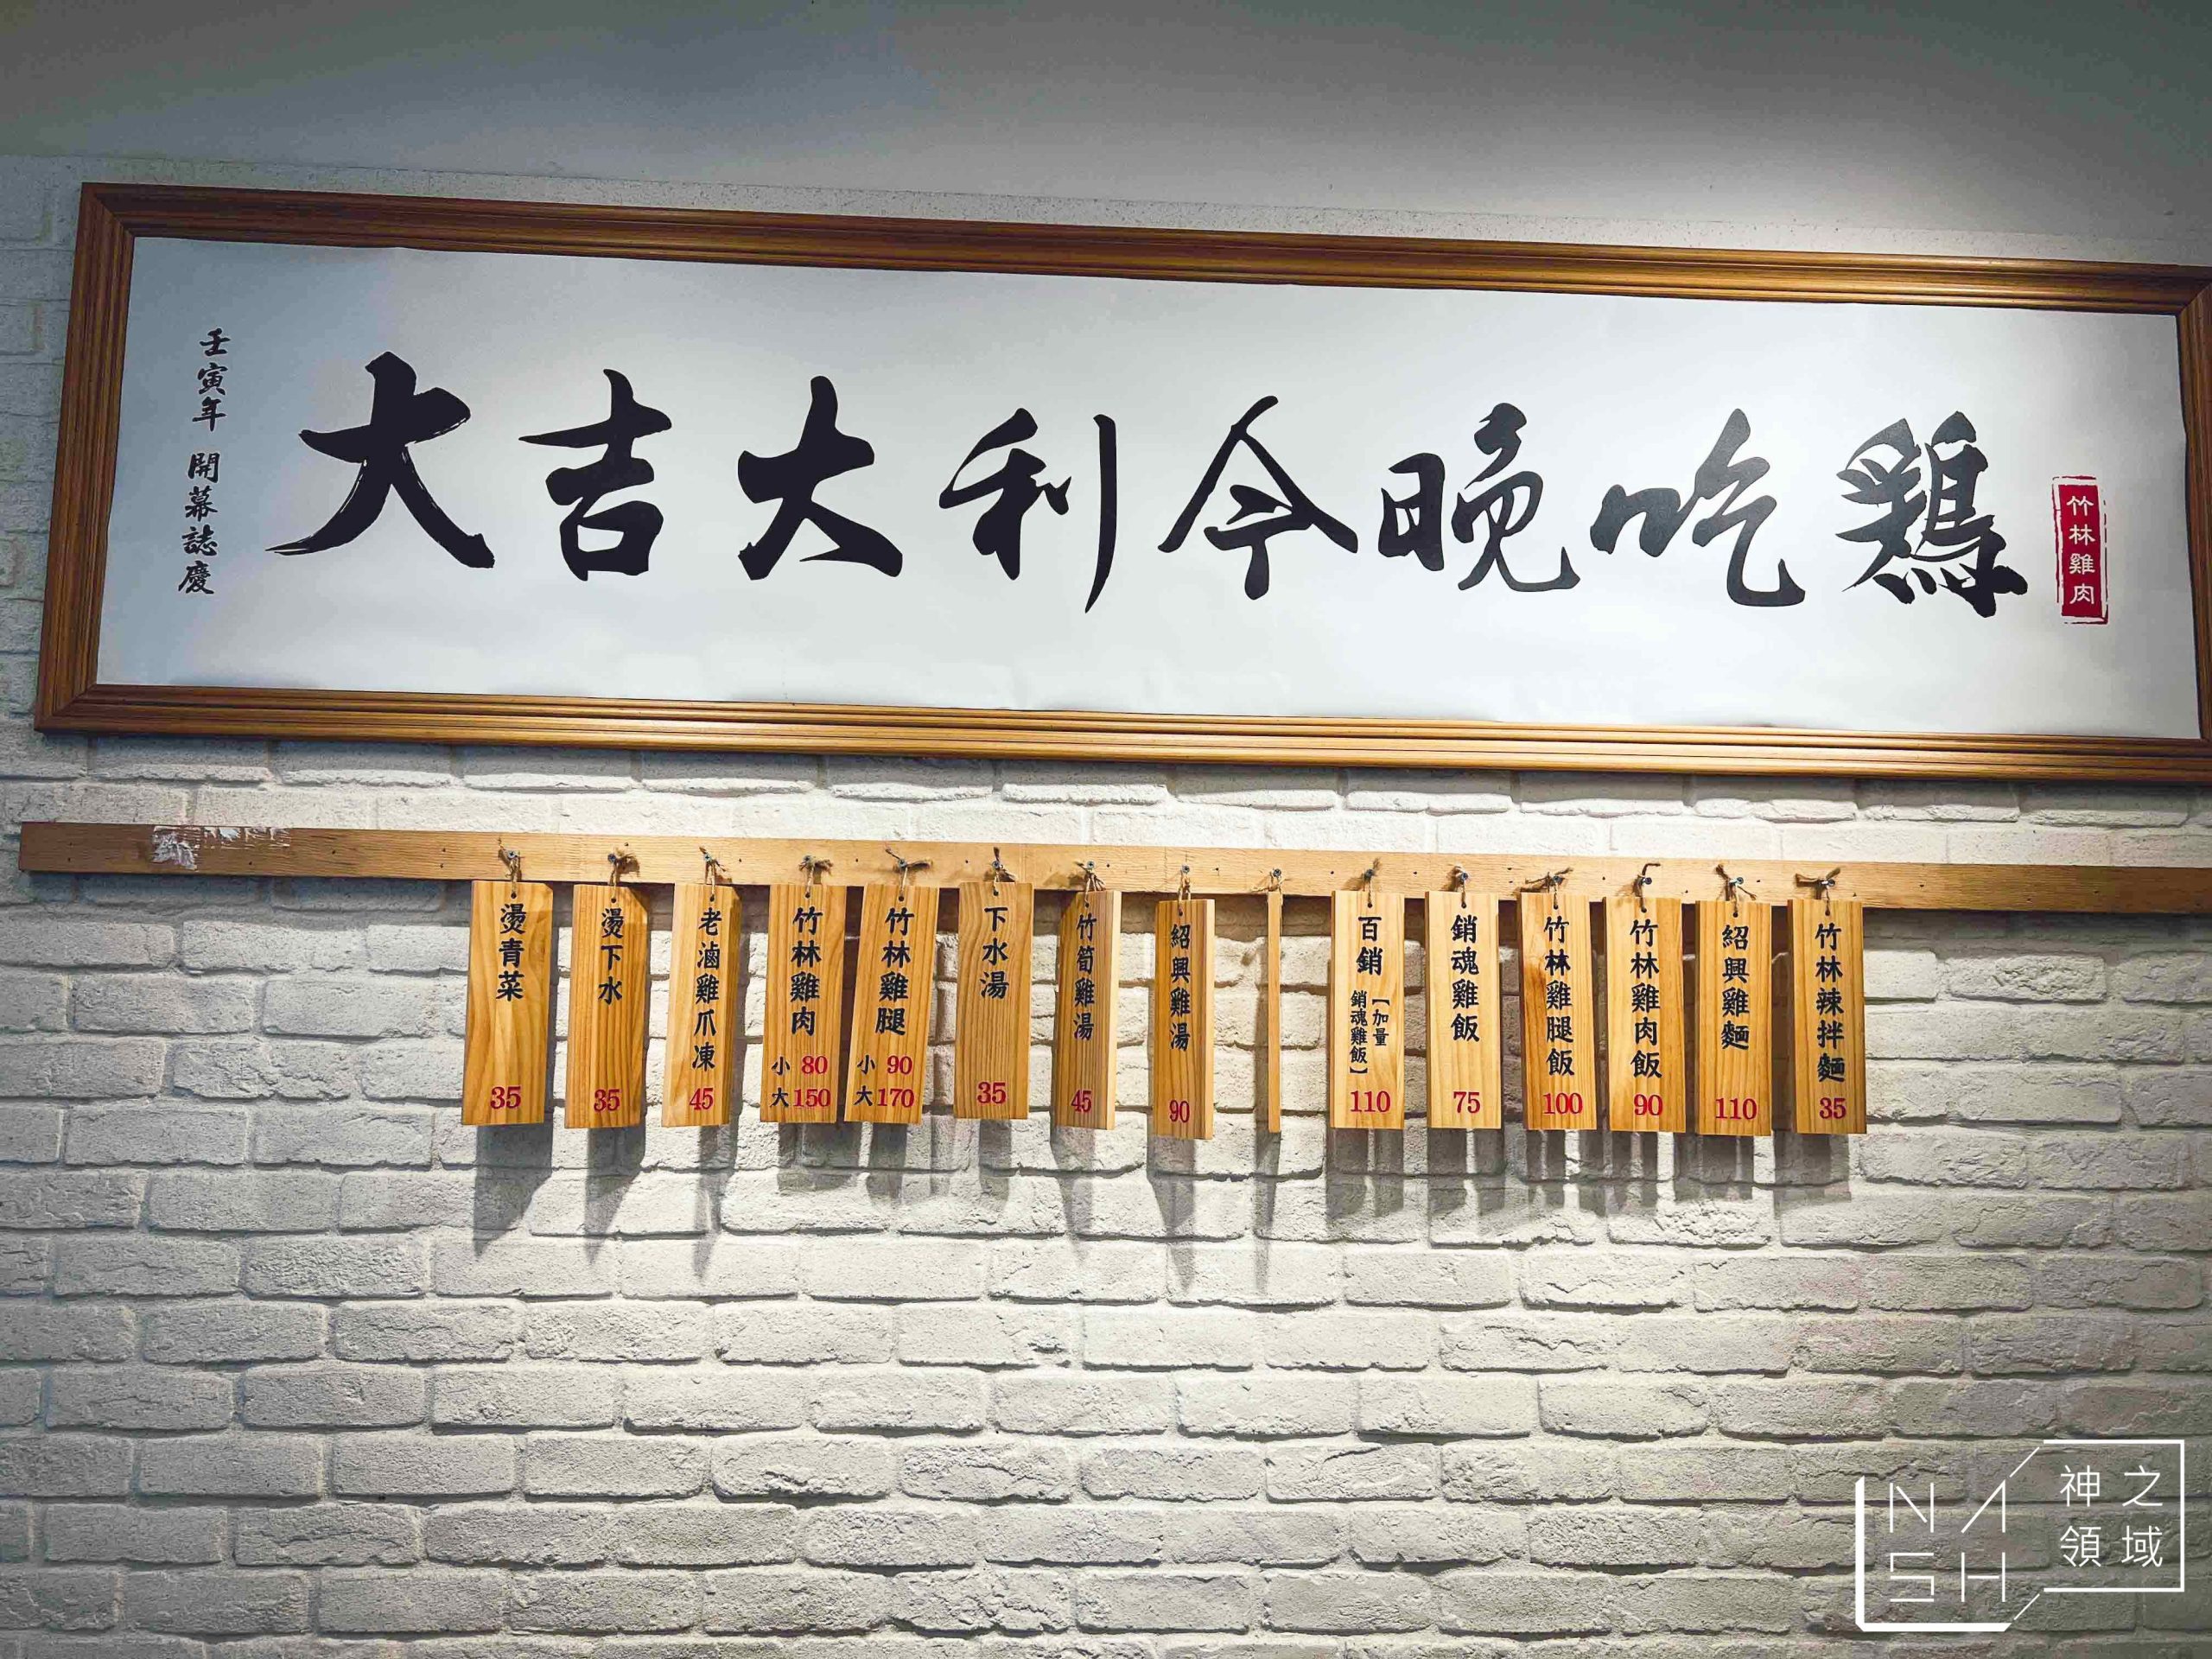 大吉大利今晚吃鷄
竹林雞肉
壬寅年 開幕誌慶
燙青菜
35
燙下水
35
老滷雞爪凍
45
竹林雞肉
小 80
大 150
竹林雞腿
小 90
大 170
下水湯
35
竹筍雞湯
45
紹興雞湯
90
百銷
【加量
銷魂雞飯】
110
銷魂雞飯
75
竹林雞腿飯
100
竹林雞肉飯
90
紹興雞麵
110
竹林辣拌麵
35
NASH
神之領域